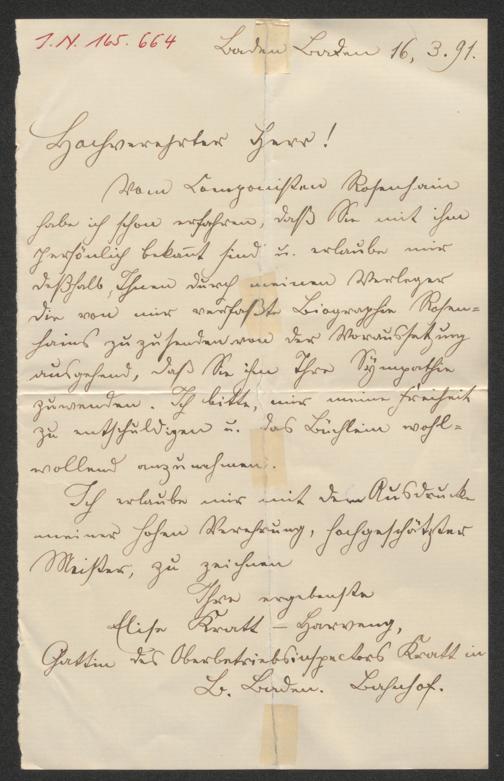 I. N. 165.664
Baden Baden 16, 3. 91.
Hochverehrter Herr!
Vom Componisten Rosenhain
habe ich schon erfahren, daß Sie mit ihm
persönlich bekan̄t sind u. erlaube mir
deßhalb, Ihnen durch meinen Verleger
die von mir verfaßte Biographie Rosen=
hains zuzusenden von der Voraussetzung
ausgehend, daß Sie ihm Ihre Sympathie
zuwenden. Ich bitte, mir meine Freiheit
zu entschuldigen u. das Büchlein wohl=
wollend anzunehmen.
Ich erlaube mir mit dem Ausdrucke
meiner hohen Verehrung, hochgeschätzter
Meister, zu zeichnen
Ihre ergebenste
Elise Kratt-Harveng,
Gattin des Oberbetriebsinspectors Kratt in
B. Baden. Bahnhof.